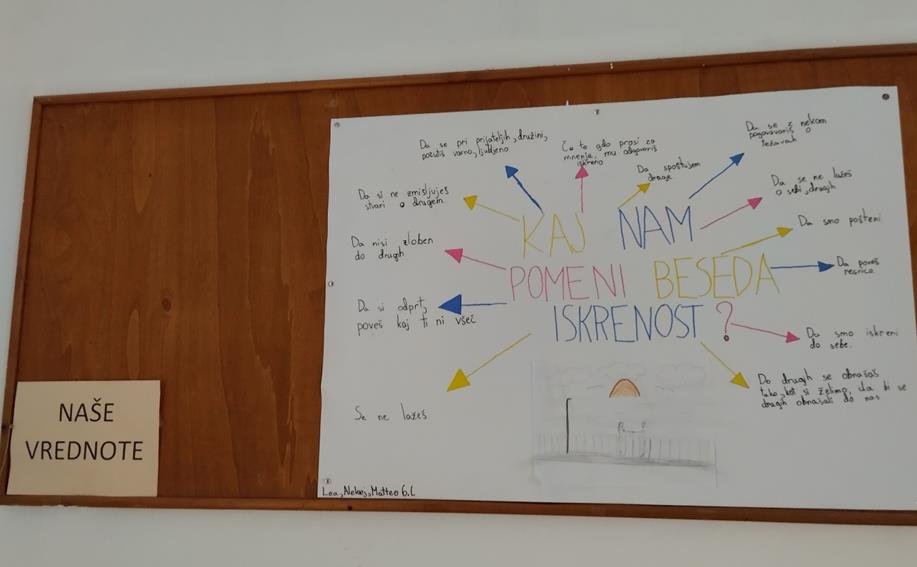 Da se pri prijateljih, družini,
počutiš varno, ljubljeno
Če te gdo prosi za
mnenje, mu odgovoriš
iskreno
Da spoštujem
druge
Da se z nekom
pogovarjaš o
težavah
Da si ne zmisljuješ
stvari o drugem
Da se ne lažeš
o sebi, drugih
Da nisi zloben
do drugih
Da smo pošteni
Da si odprt,
poveš kaj ti ni všeč
Da poveš
resnico
KAJ NAM
POMENI BESEDA
ISKRENOST ?
Se ne lažeš
Da smo iskreni
do sebe.
Do drugih se obnašaš
tako, kot si želimo, da bi se
drugih obnašali do nas
Lea, Matteo 6.
NAŠE
VREDNOTE